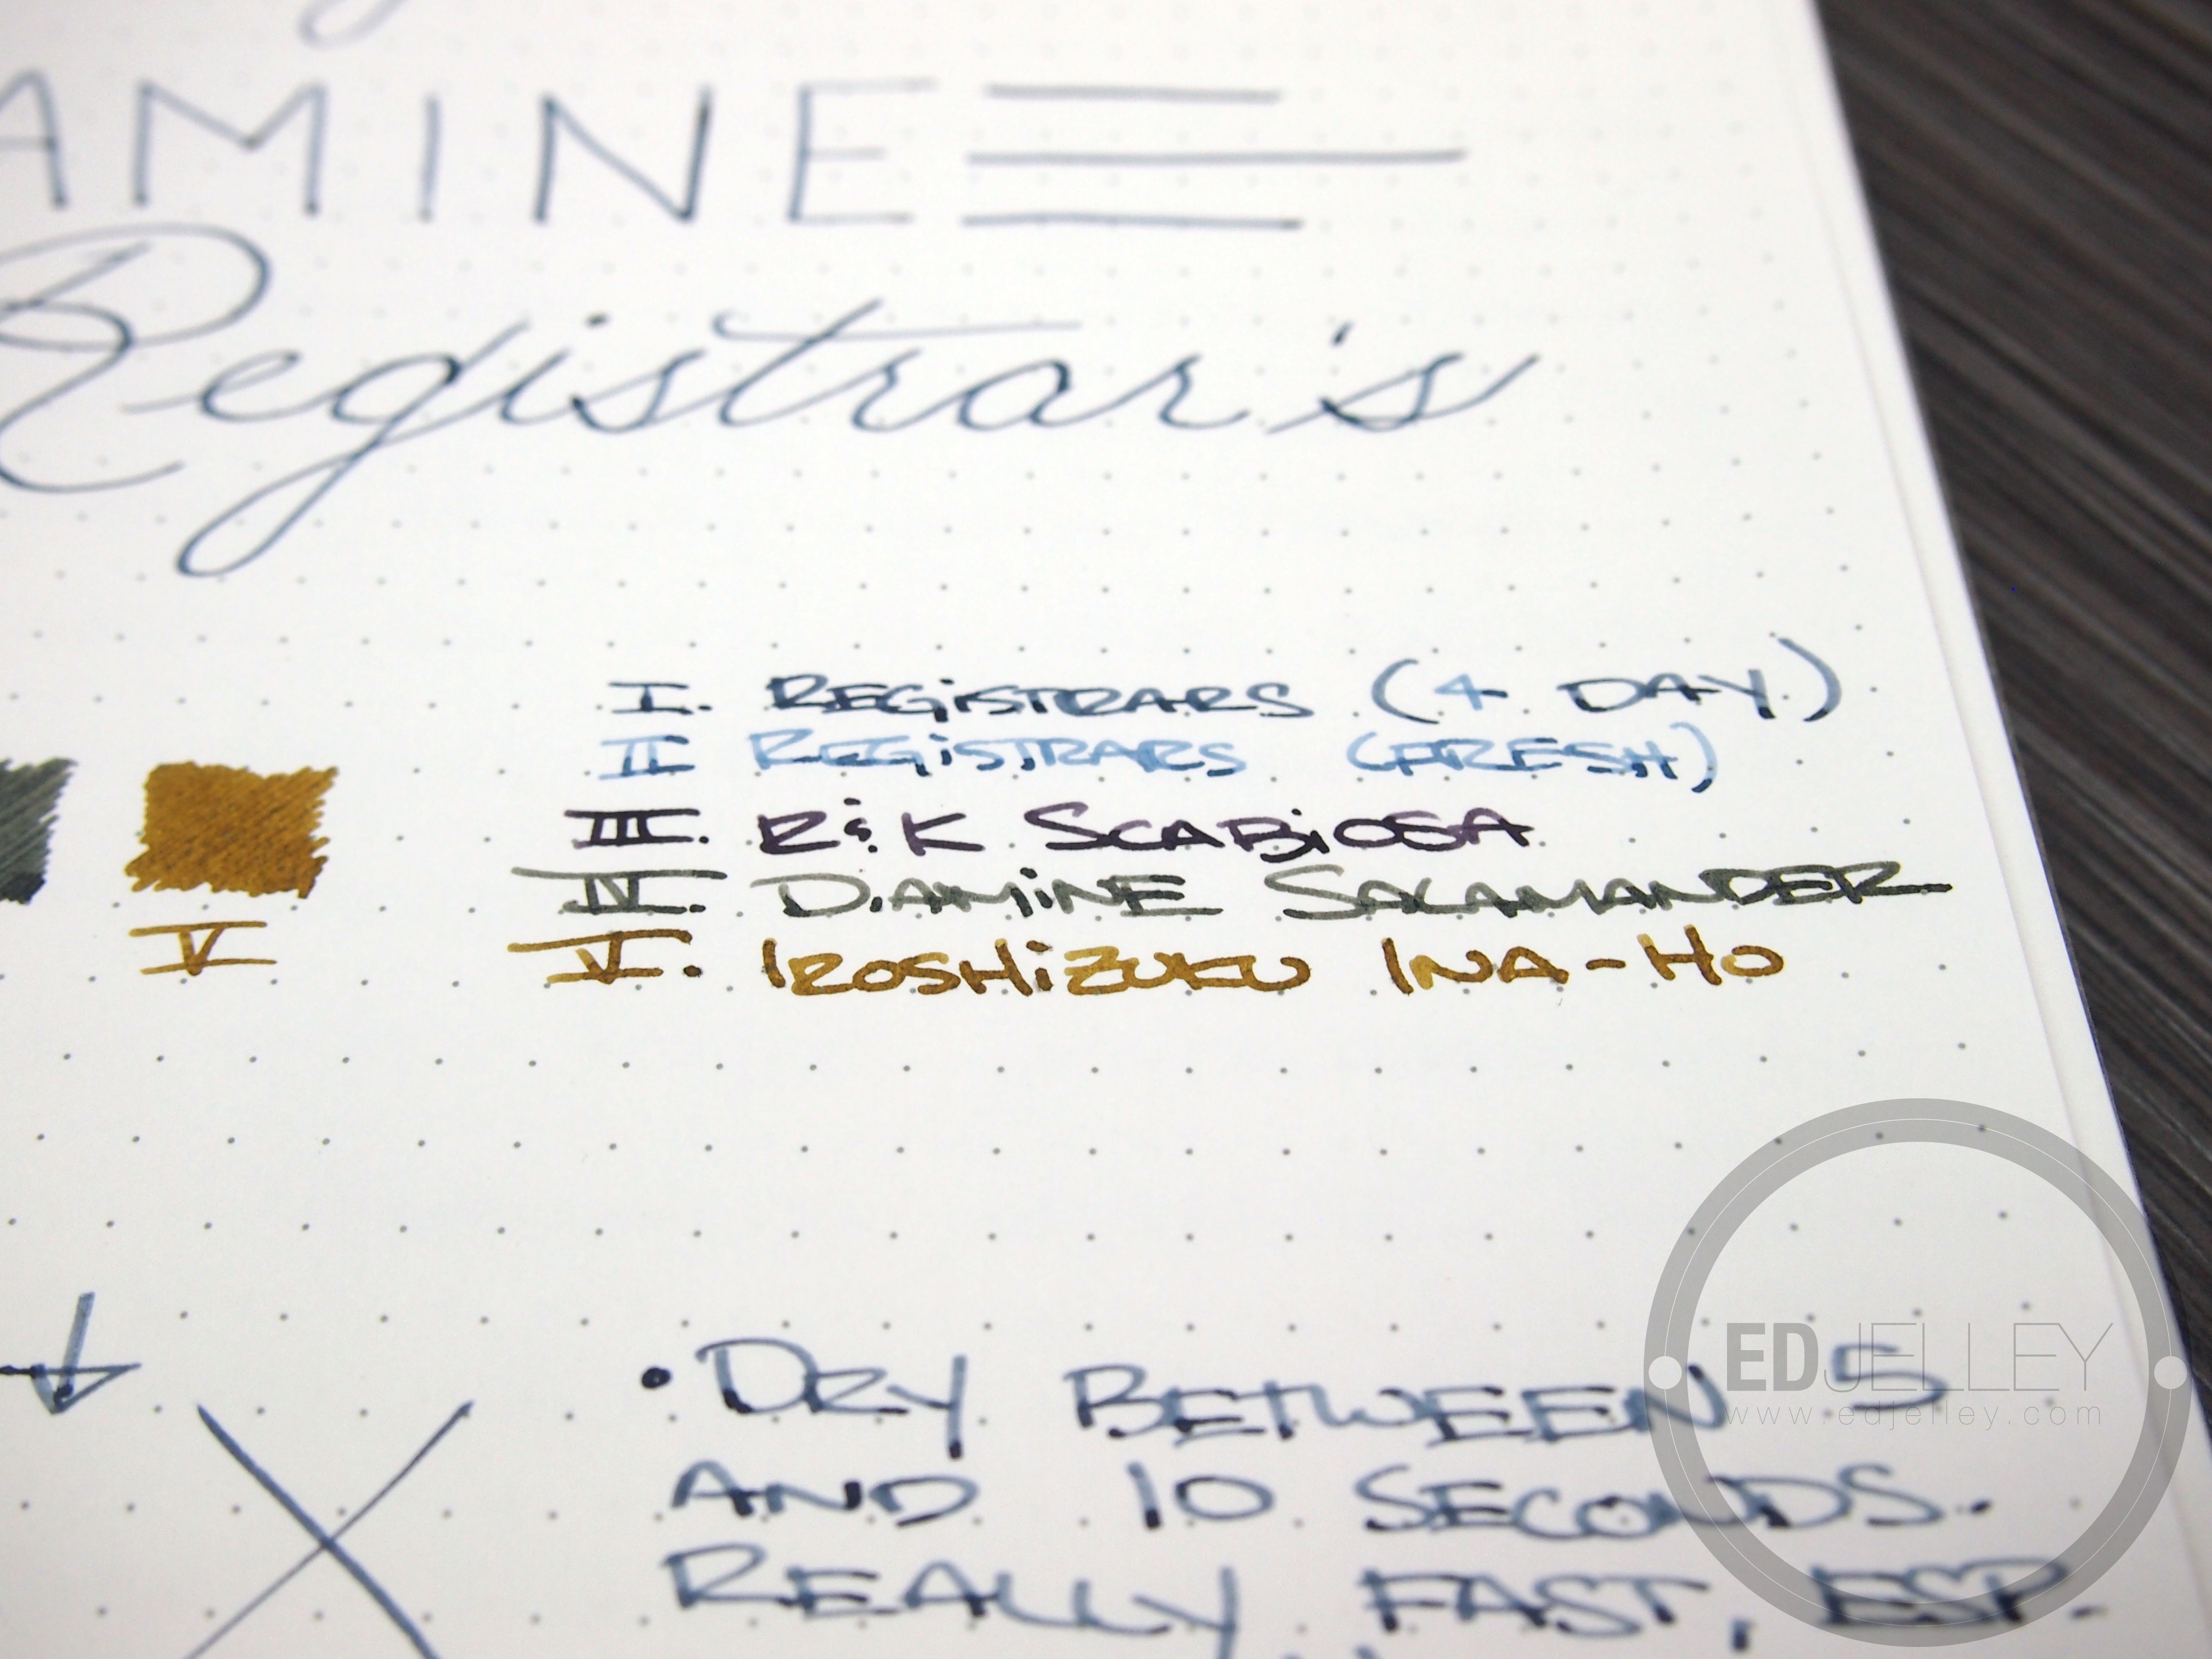 AMINE
Registrar's
I. REGISTRARS (4 DAY)
II REGISTRARS (FRESH)
III. R&K SCABIOSA
IV. DIAMINE SALAMANDER
V
V. IROSHIZUKU INA-HO
• DRY BETWEEN 5
AND 10 SECONDS.
REALLY FAST, ESP.
EDJELLEY
www.edjelley.com